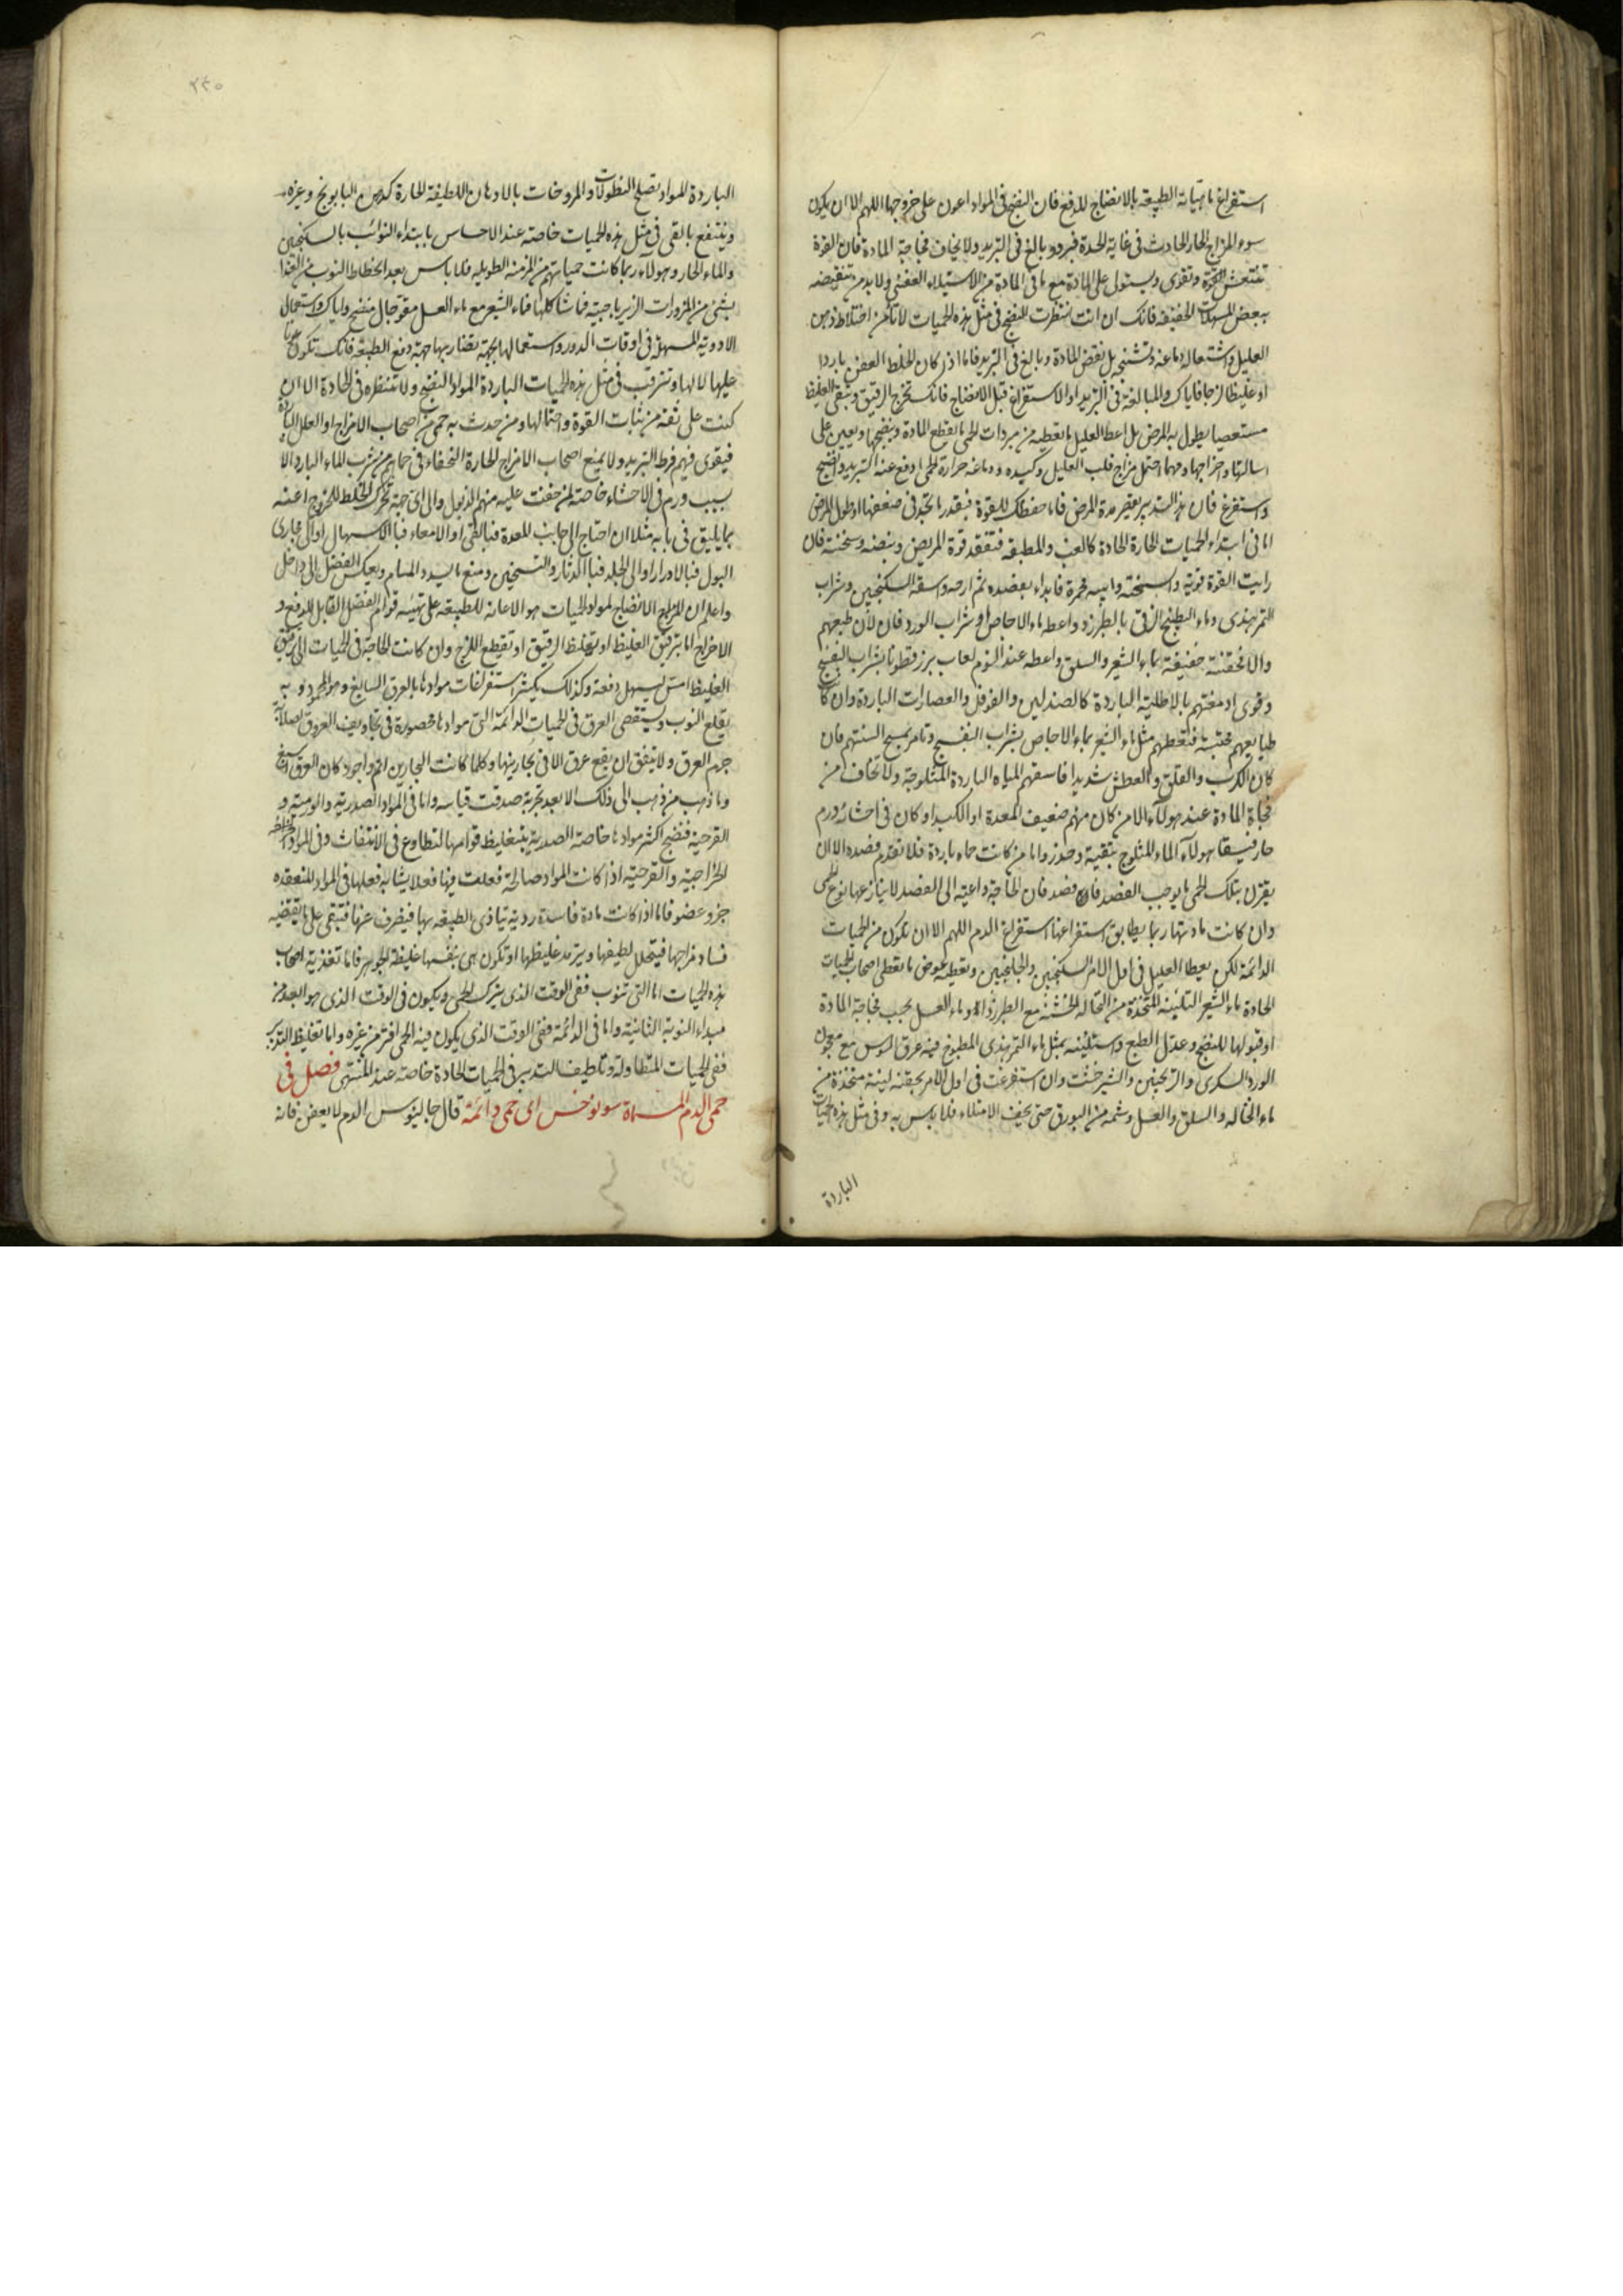 استفراغ ما تهيأته الطبيعة بالانضاج للدفع فان النضج فى المواد اعون على خروجها اللهم الا ان يكون
سوء المزاج الحار الحادث فى غاية الحدة فبرد وبالغ فى التبريد ولا يخاف فجاجة المادة فان القوة
تنتعش وتقوى ويستولى على المادة مع ما فى المادة من الاستيلاء العفنى ولا بد من
ببعض المسهلات الخفيفة فانك ان انت انتظرت النضج فى مثل هذه الحميات لا تأمن اختلاط ذهن
العليل واشتعال دماغه وتشنجه بل نقض المادة وبالغ فى التبريد فاما اذا كان الخلط العفن باردا
او غليظا لزجا فاياك والمبالغة فى التبريد او الاستفراغ قبل الانضاج فانك تخرج الرقيق وتبقى الغليظ
مستعصيا يطول به المرض بل اعط العليل ما تعطيه من مبردات الحمى ما يقطع المادة وينضجها ويعين على
اسالتها واخراجها ومهما احتمل مزاج قلب العليل وكبده ودماغه حرارة الحمى ادفع عنه التبريد وانضج
واستفرغ فان هذا التدبير يقصر مدة المرض فاما حفظك للقوة فبقدر ما تجد فى ضعفها او طول المرض
اما فى ابتداء الحميات الحارة الحادة كالغب والمطبقة فتفقد قوة المريض ونبضه وسحنته فان
رايت القوة قوية والسحنة وابيه محمرة فابداء بفصده ثم ارحه واسقه السكنجبين وشراب
التمر هندى وماء البطيخ الزقى بالطبرزد واعطه ماء الاجاص او شراب الورد فان لان طبعهم
والا فحقنة خفيفة بماء الشعير والسلق واعطه عند النوم لعاب بزرقطونا بشراب البنفسج
وقوى ادمغتهم بالاطلية الباردة كالصندلين والفوفل والعصارات الباردة وان كانت
طبايعهم محتبسة فتعطهم مثل ماء الشعير بماء الاجاص بشراب البنفسج وتامر بمسح السنتهم فان
كان الكرب والقلق والعطش شديدا فاسقهم المياه الباردة المثلوجة ولا تخاف من
فجاجة المادة عند هولاء الا من كان منهم ضعيف المعدة او الكبد او كان فى احشائه ورم
حار فيسقا هولاء الماء المثلوج بتقية وحذر واما من كانت حماه باردة فلا تقدم فصده الا ان
يقترن بتلك الحمى ما يوجب الفصد فان فصد فان الحاجة داعية الى الفصد لا ينازعها نوع الحمى
وان كانت مادتها ربما يطابق استفراغها استفراغ الدم اللهم الا ان تكون من الحميات
الدائمة لكن يعطا العليل فى اول الامر السكنجبين والجلنجبين وتعطيه عوض ما تعطى اصحاب الحميات
الحادة ماء الشعير المتخذة من النخالة الخشنة مع الطبرزد او ماء العسل بحسب فجاجة المادة
او قبولها للنضج وعدل الطبع واستلينه بمثل ماء التمر هندى المطبوخ فيه عرق السوس مع معجون
الورد السكرى والترنجبين والشيرخشت وان استفرغت فى اول الامر بحقنة لينة متخذة من
ماء النخالة والسلق والعسل وشمه من البورق حتى يخف الامتلاء فلا باس به وفى مثل هذه الحميات
الباردة
٢٢٥
الباردة المواد تصلح النطولات والمروخات بالادهان اللطيفة الحارة كدهن البابونج وغيره
وينتفع بالقى فى مثل هذه الحميات خاصة عند الاحساس بابتداء النوائب بالسكنجبين
والماء الحار وهولاء ربما كانت حمياتهم من المزمنة الطويلة فلا باس بعد انحطاط النوب من الغذا
بشئ من المزورات الزيرباجية فما شاكلها فماء الشعير مع ماء العسل مقو جال منضج واياك واستعمال
الادوية المسهلة فى اوقات الدور واستعمالها بجهة تضار بها جهة دفع الطبيعة فانك تكون عونا
عليها لا لها وتترقب فى مثل هذه الحميات الباردة المواد النضج ولا تنتظره فى الحادة الا ان
كنت على ثقة من ثبات القوة واحتمالها ومن حدث به حمى من اصحاب الامزاج او العلل الباردة
فيقوى فيهم فرط التبريد ولا يمنع اصحاب الامزاج الحارة النحفاء فى حماهم من شرب الماء البارد الا
بسبب ورم فى الاحشاء خاصة لمن خفت عليه منهم الذبول والى اى جهة تحرك الخلط للخروج اعنه
بما يليق فى بابه مثلا ان احتاج الى جانب المعدة فبالقى او الامعاء فبالاسهال او الى مجارى
البول فبالادرار او الى الجلد فبالدثار والتسخين ومنع ما يسدد المسام ويعكس الفضل الى داخل
واعلم ان المزاج الانضاج لمواد الحميات هو الاعانة للطبيعة على تهيئة قوام الفضل القابل للدفع و
الاخراج اما بترقيق الغليظ او تغليظ الرقيق او تقطيع اللزج وان كانت الحاجة فى الحميات الى ترقيق
الغليظ امس ليسهل دفعه وكذلك يكثر استفراغات موادها بالعرق السابغ وهو المحمود وبه
يقلع النوب ويستقصى العرق فى الحميات الدائمة التى موادها محصورة فى تجاويف العروق لصلابة
جرم العرق ولا يتفق ان يقع عرق الا فى بحارينها وكلما كانت البحارين اتم واجود كان العرق اسبغ
وما ذهب من ذهب الى ذلك الا بعد تجربة صدقت قياسه واما فى المواد الصدرية والورمية و
القرحية فنضج اكثر موادها خاصة الصدرية بتغليظ قوامها لتطاوع فى الانتفاث وفى المواد
الخراجية والقرحية اذا كانت المواد صالحة فعلت فيها فعلا يشابه فعلها فى المواد المنعقدة
جزو عضو فاما اذا كانت مادة فاسدة ردية تتاذى الطبيعة بها فيضرف عنها فتبقى على ما يقتضيه
فساد مزاجها فيتحلل لطيفها ويترمد غليظها او تكون هى بنفسها غليظة الجوهر فاما تغذية اصحاب
هذه الحميات اما التى تنوب ففى الوقت الذى يترك الحمى ويكون فى الوقت الذى هو ابعد من
مبداء النوبة الثانية واما فى الدائمة ففى الوقت الذى يكون فيه الحمى افتر من غيره واما تغليظ التدبير
ففى الحميات المتطاولة وتلطيف التدبير فى الحميات الحادة خاصة عند المنتهى فصل فى
حمى الدم المسماة سونوخس اى حمى دائمة قال جالينوس الدم لا يعفن فانه